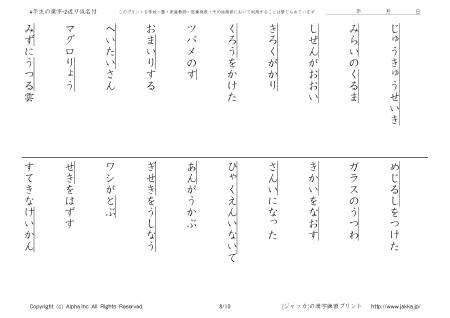 4年生の漢字-2送り仮名付
このプリントを学校・塾・家庭教師・医療施設・その他施設において利用することは禁じられています
年 月 日
じゅうきゅうせいき
みらいのくるま
しぜんがおおい
きろくがかり
くろうをかけた
ツバメのす
おまいりする
へいたいさん
マグロりょう
みずにうつる雲
めじるしをつけた
ガラスのうつわ
きかいをなおす
さんいになった
ひゃくえんいないで
あんがうかぶ
ぎせきをうしなう
ワシがとぶ
せきをはずす
すてきなけいかん
Copyright (c) Alpha.Inc All Rights Reserved.
8/10
[ジャッカ]の漢字練習プリント http://www.jakka.jp/